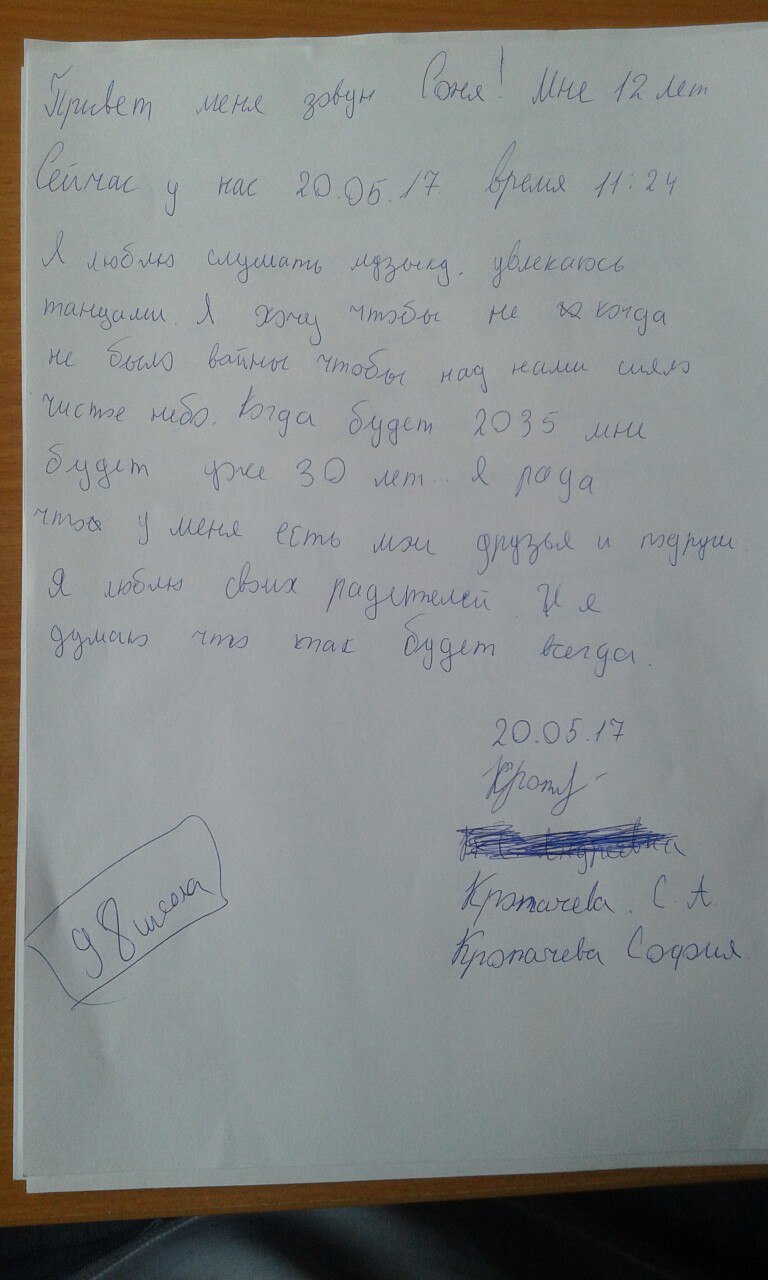 Привет меня зовут Соня! Мне 12 лет
Сейчас у нас 20.05.17. время 11:24
Я люблю слушать музыку. увлекаюсь
танцами. Я хочу чтобы не когда
не было вайны чтобы над нами сияло
чистое небо. Когда будет 2035 мне
будет уже 30 лет.. Я рада
что у меня есть мои друзья и подруги
Я люблю своих радителей И я
думаю что так будет всегда.
20.05.17
Кропачева. С. А.
98 школа
Кропачева София